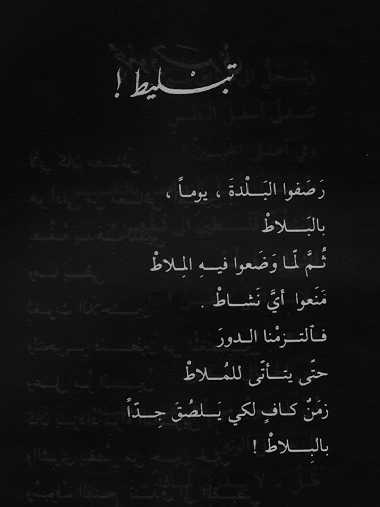 تبليط !
رَصَفوا البَلْدةَ ، يوماً ،
بالبَلاطْ
ثُمَّ لمّا وَضَعوا فيهِ المِلاطْ
مَنَعوا أيَّ نَشاطْ .
فٱلتزمْنا الدورَ
حتّى يتأتّى للمُلاطْ
زمَنٌ كافٍ لكي يَلصُقَ جِدّاً
بالبِلاطْ !